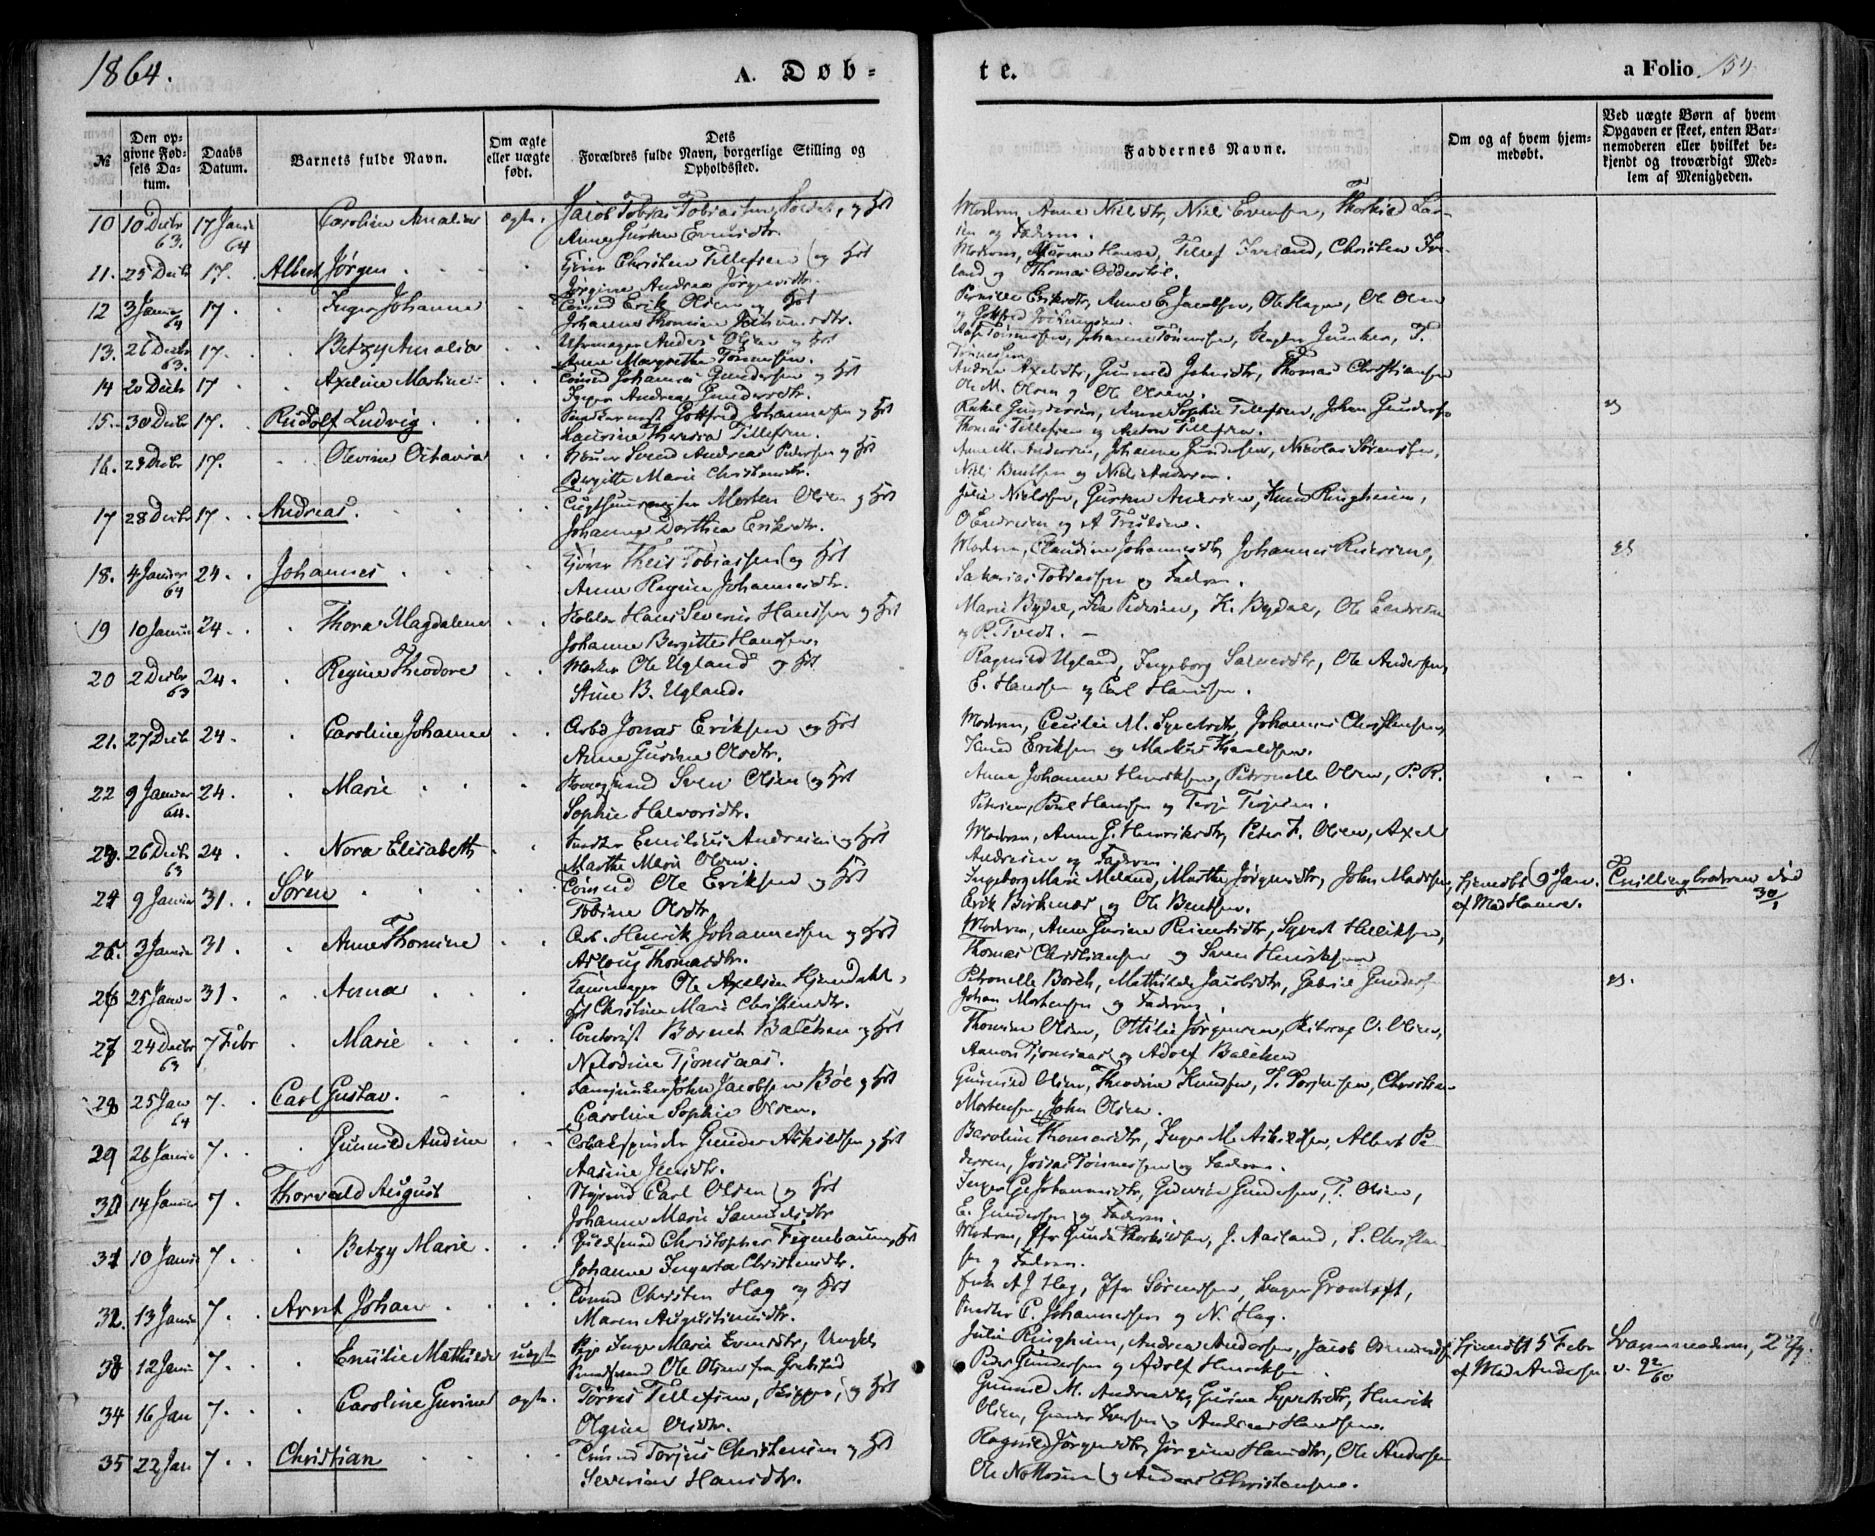 1864.
A. Døb-
te.
a Folio 154
№
Den op-
givne Fød-
sels Da-
tum.
Daabs
Datum.
Barnets fulde Navn.
Om ægte
eller uægte
født.
Dets
Forældres fulde Navn, borgerlige Stilling og
Opholdssted.
Faddernes Navne.
Om og af hvem hjem-
medøbt.
Ved uægte Børn af hvem
Opgaven er skeet, enten Bar-
nemoderen eller hvilket be-
kjendt og troværdigt Med-
lem af Menigheden.
10 10 Decbr 63. 17 Janr 64 Caroline Amalia ægte. Jacob Tobias Tobiassen, og Hst
Anne Gurine Evensdtr.
Moderen, Anne Nielsdtr, Niels Evensen, Thorkild Lar-
sen og Faderen.
11. 25 Decbr 17. Albert Jørgen Christen Tellefsen og Hst
Jørgine Andrea Jørgensdtr.
Moderen, Maren Hansen, Tellef Iveland, Christen Ive-
land og Thomas
12 3 Januar 64 17. Inger Johanne Tømd Erik Olsen og Hst
Johanne Thomine Jochumsdtr.
Pernille Eriksdtr, Anne E. Jacobsen, Ole Hagen, Ole Olsen
og Gotfred
13. 26 Decbr 63. 17. Betzy Amalia Uhrmager Anders Olsen og Hst
Anne Margrethe Tønnesen.
Tønnesen, Johanne Tønnesen, Junker, T.
Tønnesen
14 20 Decbr 17 Axeline Martine Tømd Johannes Gundersen og Hst
Inger Andrea Gundersdtr.
Andrea Axelsdtr, Gunnild Johnsdtr, Thomas Christiansen
Ole M. Olsen og Ole Olsen.
15. 30 Decbr 17. Rudolf Ludvig Gotfred Johannesen og Hst
Laurine Theresa Tellefsen.
Rakel Gundersen, Anne Sophie Tellefsen, Johan Gunders.
Thomas Tellefsen og Anton Tellefsen.
16. 28 Decbr 17. Olevine Octavia Svend Andreas Pedersen og Hst
Birgitte Marie Christensdtr.
Anne M. Andersen, Johanne Gundersen, Nicolai Sørensen,
Niels Bentsen og Niels Andersen.
17 28 Decbr 17. Andreas. Tugthusvægter Morten Olsen og Hst
Johanne Dorthea Eriksdtr.
Julie Nielsen, Gurine Andersen, Knud Ringheim,
O Endresen og A Trulsen.
18. 4 Januar 64 24. Johannes Theis Tobiassen og Hst
Anne Regine Johannesdtr.
Moderen, Claudine Johannesdtr, Johannes
Sakarias Tobiassen og Faderen.
19 10 Januar 24. Thora Magdalene Hans Severin Hansen og Hst
Johanne Bergitte Hansen.
Marie Bydal, Pedersen, K. Bydal, Ole Endresen
og P. Tvedt.
20 2 Decbr 63 24. Regine Theodore Ole Ugland og Hst
Stine B. Ugland.
Ragnild Ugland, Ingeborg Salvesdtr, Ole Andersen,
E. Hansen og Carl Hansen.
21. 27 Decbr 24. Caroline Johanne Arbd Jonas Eriksen og Hst
Anne Gurine Olsdtr.
Moderen, Cecilie M. Syvertsdtr, Johannes Christensen,
Knud Eriksen og Markus Haraldsen.
22 9 Januar 64. 24. Marie Sven Olsen og Hst
Sophie Halvorsdtr.
Anne Johanne Henriksen, Petronelle Olsen, P. R.
Petersen, Poul Hansen og Terje Terjesen.
23. 26 Decbr 63 24 Nora Elisabeth Emilius Andresen og Hst
Marthe Marie Olsen.
Moderen, Anne G. Henriksdtr, Peter F. Olsen, Axel
Andresen og Faderen.
24 9 Januar 31. Søren Tømd Ole Eriksen og Hst
Tobine Olsdtr
Ingeborg Marie Meland, Marthe Jørgensdtr, John Madsen,
Erik Birkenes og Ole Bentsen.
Hjemdøbt 9 Jan.
af Mad Hansen.
Tvillingbroderen død
30/1
25. 3 Januar 31. Anne Thomine Arb. Henrik Johannessen og Hst
Aslaug Thomasdtr.
Moderen, Anne Gurine Reiersdtr, Syvert Henriksen,
Thomas Christiansen og Søren Henriksen
26 25 Januar 31. Anna Ole Axelsen Hjemdahl,
Hst Christine Marie Christensdtr.
Petronelle Borch, Mathilde Jacobsdtr, Gabriel Gunders.
Johan Mortensen og Faderen.
27 24 Decbr 63 7 Febr Marie Contorist Bernt Balchen og Hst
Nicoline Tjomsaas.
Thomine Olsen, Ottilie Jørgensen, O. Olsen,
Aanon Tjomsaas og Adolf Balchen
28 25 Jan 64 7. Carl Gustav. John Jacobsen Bøe og Hst
Caroline Sophie Olsen.
Gunnild Olsen, Theodine Knudsen, T. Torjusen, Christian
Mortensen, John Olsen.
29 26 Januar 7. Gunnild Andine Tobakspinder Gunder Askildsen og Hst
Aasine Jensdtr.
Caroline Thomasdtr, Inger M. Askildsen, Albert Pe-
dersen, Josias Tønnesen og Faderen.
30 14 Januar 7. Thorvald August Styrmd Carl Olsen og Hst
Johanne Marie Samuelsdtr
Inger G. Johannesdtr, Gurine Gundersen, T. Olsen,
E. Gundersen og Faderen.
31 10 Januar 7. Betzy Marie Christopher Figenbaum, Hst
Johanne Ingertha Christensdtr.
Moderen, Jfr Gunda Thorkildsen, J. Aasland, S. Christen-
sen og Faderen.
32. 13 Januar 7. Arnt Johan Tømd Christen Hag og Hst
Maren Augustinusdtr.
Enke A J Hag, Jfr Sørensen,
C. Johannessen og N. Hag.
33 12 Januar 7. Emilie Mathilde uægte Pige Inger Marie Evensdtr, Ungkl
Ole Olsen fra
Julie Ringheim, Andrea Andersen, Jacob
Peder Gundersen og Adolf Henriksen
Hjemdøbt 5 Febr
af Mad Andersen
Barnemoderen, 2 Gg.
v. 92/60
34 16 Jan 7. Caroline Gurine ægte. Tønnes Tellefsen, Skipper, og Hst
Olgine Olsdtr.
Gunnild M. Andreasdtr, Gurine Syvertsdtr, Henrik
Olsen, Gunder Iversen og Andreas Hansen.
35 22 Jan 7. Christian Tømd Torjus Christensen og Hst
Severine Hansdtr.
Ragnild Jørgensdtr, Jørgine Hansdtr, Ole Andersen
Ole Nottosen og Anders Christensen.